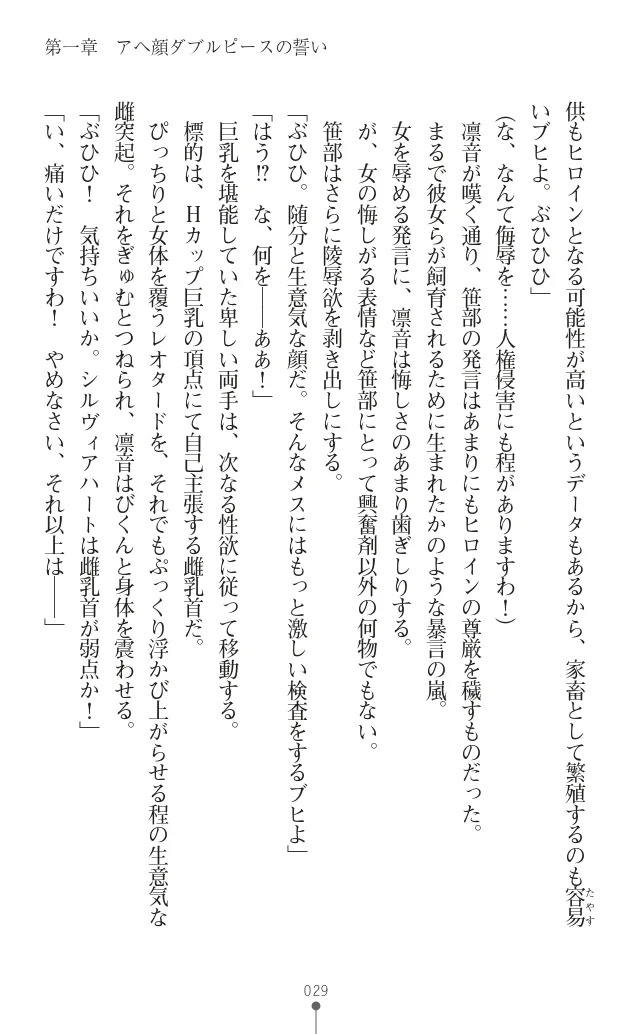 第一章　アヘ顔ダブルピースの誓い
供もヒロインとなる可能性が高いというデータもあるから、家畜として繁殖するのも容易
たやす
いブヒよ。ぶひひひ」
(な、なんて侮辱を……人権侵害にも程がありますわ！)
凛音が嘆く通り、笹部の発言はあまりにもヒロインの尊厳を穢すものだった。
まるで彼女らが飼育されるために生まれたかのような暴言の嵐。
女を辱める発言に、凛音は悔しさのあまり歯ぎしりする。
が、女の悔しがる表情など笹部にとって興奮剤以外の何物でもない。
笹部はさらに陵辱欲を剥き出しにする。
「ぶひひ。随分と生意気な顔だ。そんなメスにはもっと激しい検査をするブヒよ」
「はう!?　な、何を――ああ！」
巨乳を堪能していた卑しい両手は、次なる性欲に従って移動する。
標的は、Hカップ巨乳の頂点にて自己主張する雌乳首だ。
ぴっちりと女体を覆うレオタードを、それでもぷっくり浮かび上がらせる程の生意気な
雌突起。それをぎゅむとつねられ、凛音はびくんと身体を震わせる。
「ぶひひ！　気持ちいいか。シルヴィアハートは雌乳首が弱点か！」
「い、痛いだけですわ！　やめなさい、それ以上は――」
029